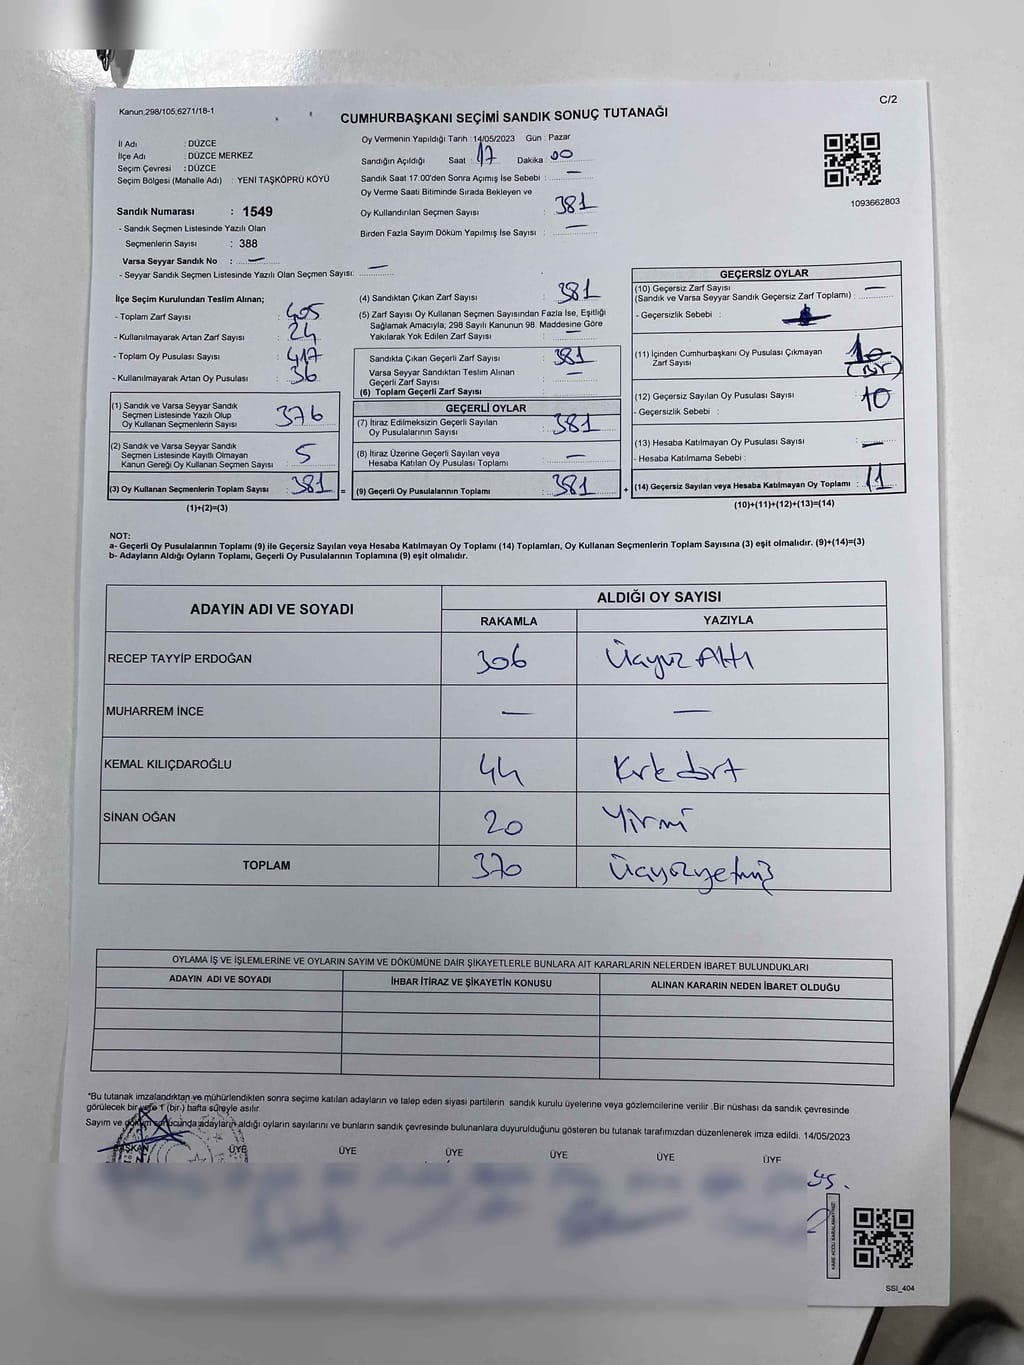 Kanun,298/105,6271/18-1
C/2
CUMHURBAŞKANI SEÇİMİ SANDIK SONUÇ TUTANAĞI
İl Adı : DÜZCE
İlçe Adı : DÜZCE MERKEZ
Seçim Çevresi : DÜZCE
Seçim Bölgesi (Mahalle Adı) : YENİ TAŞKÖPRÜ KÖYÜ
Sandık Numarası : 1549
- Sandık Seçmen Listesinde Yazılı Olan
Seçmenlerin Sayısı : 388
Varsa Seyyar Sandık No : —
- Seyyar Sandık Seçmen Listesinde Yazılı Olan Seçmen Sayısı: —
Oy Vermenin Yapıldığı Tarih : 14/05/2023 Gün : Pazar
Sandığın Açıldığı Saat : 17 Dakika : 00
Sandık Saat 17:00'den Sonra Açımış İse Sebebi : —
Oy Verme Saati Bitiminde Sırada Bekleyen ve
Oy Kullandırılan Seçmen Sayısı : 381
Birden Fazla Sayım Döküm Yapılmış İse Sayısı : —
1093662803
İlçe Seçim Kurulundan Teslim Alınan;
- Toplam Zarf Sayısı : 405
- Kullanılmayarak Artan Zarf Sayısı : 24
- Toplam Oy Pusulası Sayısı : 417
- Kullanılmayarak Artan Oy Pusulası : 36
(1) Sandık ve Varsa Seyyar Sandık
Seçmen Listesinde Yazılı Olup
Oy Kullanan Seçmenlerin Sayısı : 376
(2) Sandık ve Varsa Seyyar Sandık
Seçmen Listesinde Kayıtlı Olmayan
Kanun Gereği Oy Kullanan Seçmen Sayısı : 5
(3) Oy Kullanan Seçmenlerin Toplam Sayısı : 381
(1)+(2)=(3)
(4) Sandıktan Çıkan Zarf Sayısı : 381
(5) Zarf Sayısı Oy Kullanan Seçmen Sayısından Fazla İse, Eşitliği
Sağlamak Amacıyla; 298 Sayılı Kanunun 98. Maddesine Göre
Yakılarak Yok Edilen Zarf Sayısı : —
Sandıkta Çıkan Geçerli Zarf Sayısı : 381
Varsa Seyyar Sandıktan Teslim Alınan
Geçerli Zarf Sayısı : —
(6) Toplam Geçerli Zarf Sayısı :
GEÇERLİ OYLAR
(7) İtiraz Edilmeksizin Geçerli Sayılan
Oy Pusulalarının Sayısı : 381
(8) İtiraz Üzerine Geçerli Sayılan veya
Hesaba Katılan Oy Pusulası Toplamı : —
= (9) Geçerli Oy Pusulalarının Toplamı : 381 +
GEÇERSİZ OYLAR
(10) Geçersiz Zarf Sayısı —
(Sandık ve Varsa Seyyar Sandık Geçersiz Zarf Toplamı) :
- Geçersizlik Sebebi :
(11) İçinden Cumhurbaşkanı Oy Pusulası Çıkmayan
Zarf Sayısı : (Bir)
(12) Geçersiz Sayılan Oy Pusulası Sayısı : 10
- Geçersizlik Sebebi :
(13) Hesaba Katılmayan Oy Pusulası Sayısı : —
- Hesaba Katılmama Sebebi :
(14) Geçersiz Sayılan veya Hesaba Katılmayan Oy Toplamı : 11
(10)+(11)+(12)+(13)=(14)
NOT:
a- Geçerli Oy Pusulalarının Toplamı (9) ile Geçersiz Sayılan veya Hesaba Katılmayan Oy Toplamı (14) Toplamları, Oy Kullanan Seçmenlerin Toplam Sayısına (3) eşit olmalıdır. (9)+(14)=(3)
b- Adayların Aldığı Oyların Toplamı, Geçerli Oy Pusulalarının Toplamına (9) eşit olmalıdır.
ADAYIN ADI VE SOYADI
ALDIĞI OY SAYISI
RAKAMLA YAZIYLA
RECEP TAYYİP ERDOĞAN 306 Üçyüz Altı
MUHARREM İNCE — —
KEMAL KILIÇDAROĞLU 44 Kırk dört
SİNAN OĞAN 20 Yirmi
TOPLAM 370 Üçyüzyetmiş
OYLAMA İŞ VE İŞLEMLERİNE VE OYLARIN SAYIM VE DÖKÜMÜNE DAİR ŞİKAYETLERLE BUNLARA AİT KARARLARIN NELERDEN İBARET BULUNDUKLARI
ADAYIN ADI VE SOYADI İHBAR İTİRAZ VE ŞİKAYETİN KONUSU ALINAN KARARIN NEDEN İBARET OLDUĞU
*Bu tutanak imzalandıktan ve mühürlendikten sonra seçime katılan adayların ve talep eden siyasi partilerin sandık kurulu üyelerine veya gözlemcilerine verilir .Bir nüshası da sandık çevresinde
görülecek bir yere 1 (bir-) hafta süreyle asılır.
Sayım ve döküm sonucunda adayların aldığı oyların sayılarını ve bunların sandık çevresinde bulunanlara duyurulduğunu gösteren bu tutanak tarafımızdan düzenlenerek imza edildi. 14/05/2023
BAŞKAN ÜYE ÜYE ÜYE ÜYE ÜYE ÜYE
SSI_404